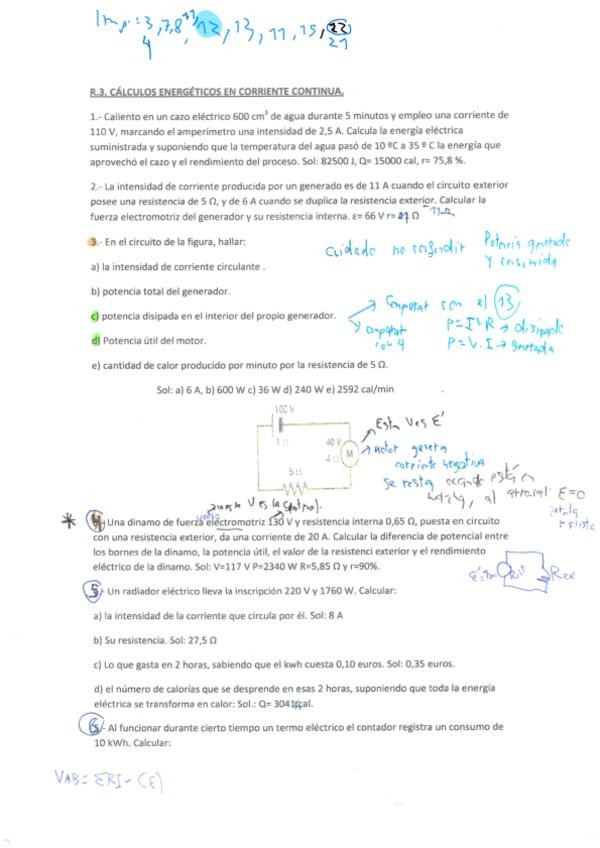 Imp: 3, 7, 8, 12, 13, 11, 15, 22
4 21
R.3. CÁLCULOS ENERGÉTICOS EN CORRIENTE CONTINUA.
1.- Caliento en un cazo eléctrico 600 cm³ de agua durante 5 minutos y empleo una corriente de
110 V, marcando el amperímetro una intensidad de 2,5 A. Calcula la energía eléctrica
suministrada y suponiendo que la temperatura del agua pasó de 10 ºC a 35 º C la energía que
aprovechó el cazo y el rendimiento del proceso. Sol: 82500 J, Q= 15000 cal, r= 75,8 %.
2.- La intensidad de corriente producida por un generado es de 11 A cuando el circuito exterior
posee una resistencia de 5 Ω, y de 6 A cuando se duplica la resistencia exterior. Calcular la
fuerza electromotriz del generador y su resistencia interna. ε= 66 V r= Ω
3.- En el circuito de la figura, hallar:
cuidado no confundir Potencia generada
y consumida
a) la intensidad de corriente circulante .
b) potencia total del generador.
comparar con el 13
c) potencia disipada en el interior del propio generador.
comparar P=I²R → disipada
d) Potencia útil del motor.
P=V.I → generada
e) cantidad de calor producido por minuto por la resistencia de 5 Ω.
Sol: a) 6 A, b) 600 W c) 36 W d) 240 W e) 2592 cal/min
100 V
Esta V es E'
1 Ω
40 V
4 Ω
M
motor genera
corriente negativa
5 Ω
se resta cuando está en
marcha, al arrancar E=0
4.- Una dinamo de fuerza electromotriz 130 V y resistencia interna 0,65 Ω, puesta en circuito
con una resistencia exterior, da una corriente de 20 A. Calcular la diferencia de potencial entre
los bornes de la dinamo, la potencia útil, el valor de la resistenci exterior y el rendimiento
eléctrico de la dinamo. Sol: V=117 V P=2340 W R=5,85 Ω y r=90%.
Rex
5.- Un radiador eléctrico lleva la inscripción 220 V y 1760 W. Calcular:
a) la intensidad de la corriente que circula por él. Sol: 8 A
b) Su resistencia. Sol: 27,5 Ω
c) Lo que gasta en 2 horas, sabiendo que el kwh cuesta 0,10 euros. Sol: 0,35 euros.
d) el número de calorías que se desprende en esas 2 horas, suponiendo que toda la energía
eléctrica se transforma en calor: Sol.: Q= 3041 cal.
6.- Al funcionar durante cierto tiempo un termo eléctrico el contador registra un consumo de
10 kWh. Calcular:
VAB= ΣRI-(ε)